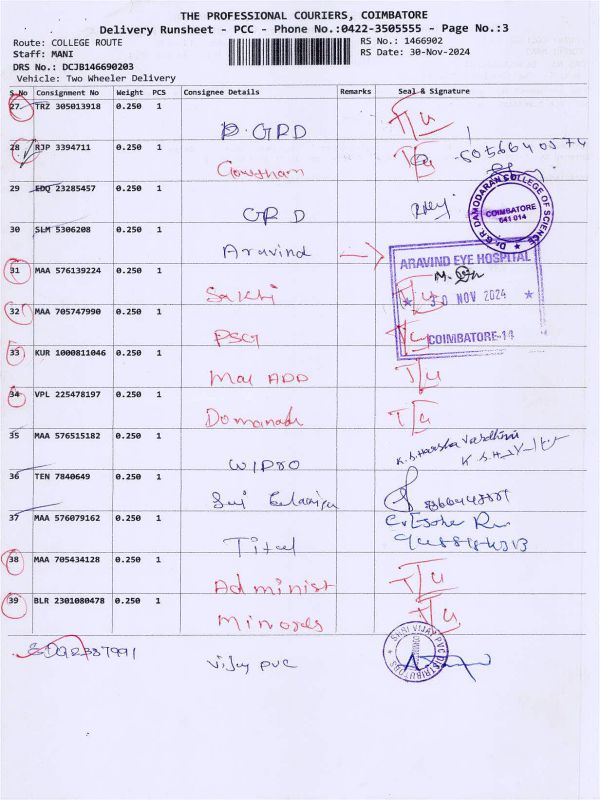 THE PROFESSIONAL COURIERS, COIMBATORE
Delivery Runsheet - PCC - Phone No.:0422-3505555 - Page No.:3
Route: COLLEGE ROUTE
RS No.: 1466902
Staff: MANI
RS Date: 30-Nov-2024
DRS No.: DCJB146690203
Vehicle: Two Wheeler Delivery
S.No Consignment No Weight PCS Consignee Details Remarks Seal & Signature
27 TRZ 305013918 0.250 1 GRD T/u
28 RJP 3394711 0.250 1 Gowtham
29 EDQ 23285457 0.250 1 GRD
Dr. G.R. DAMODARAN COLLEGE OF SCIENCE
COIMBATORE
641 014
30 SLM 5306208 0.250 1 Aravind
ARAVIND EYE HOSPITAL
30 NOV 2024
COIMBATORE-14
31 MAA 576139224 0.250 1 Sakthi T/u
32 MAA 705747990 0.250 1 PSG T/u
33 KUR 1000811046 0.250 1 T/u
34 VPL 225478197 0.250 1 T/u
35 MAA 576515182 0.250 1 WIPRO K.S.Harsha Vardhini
36 TEN 7840649 0.250 1 Sri
37 MAA 576079162 0.250 1
38 MAA 705434128 0.250 1 Administ T/u
39 BLR 2301080478 0.250 1 T/u
Vijay PVC
SHRI VIJAY PVC DISTRIBUTORS